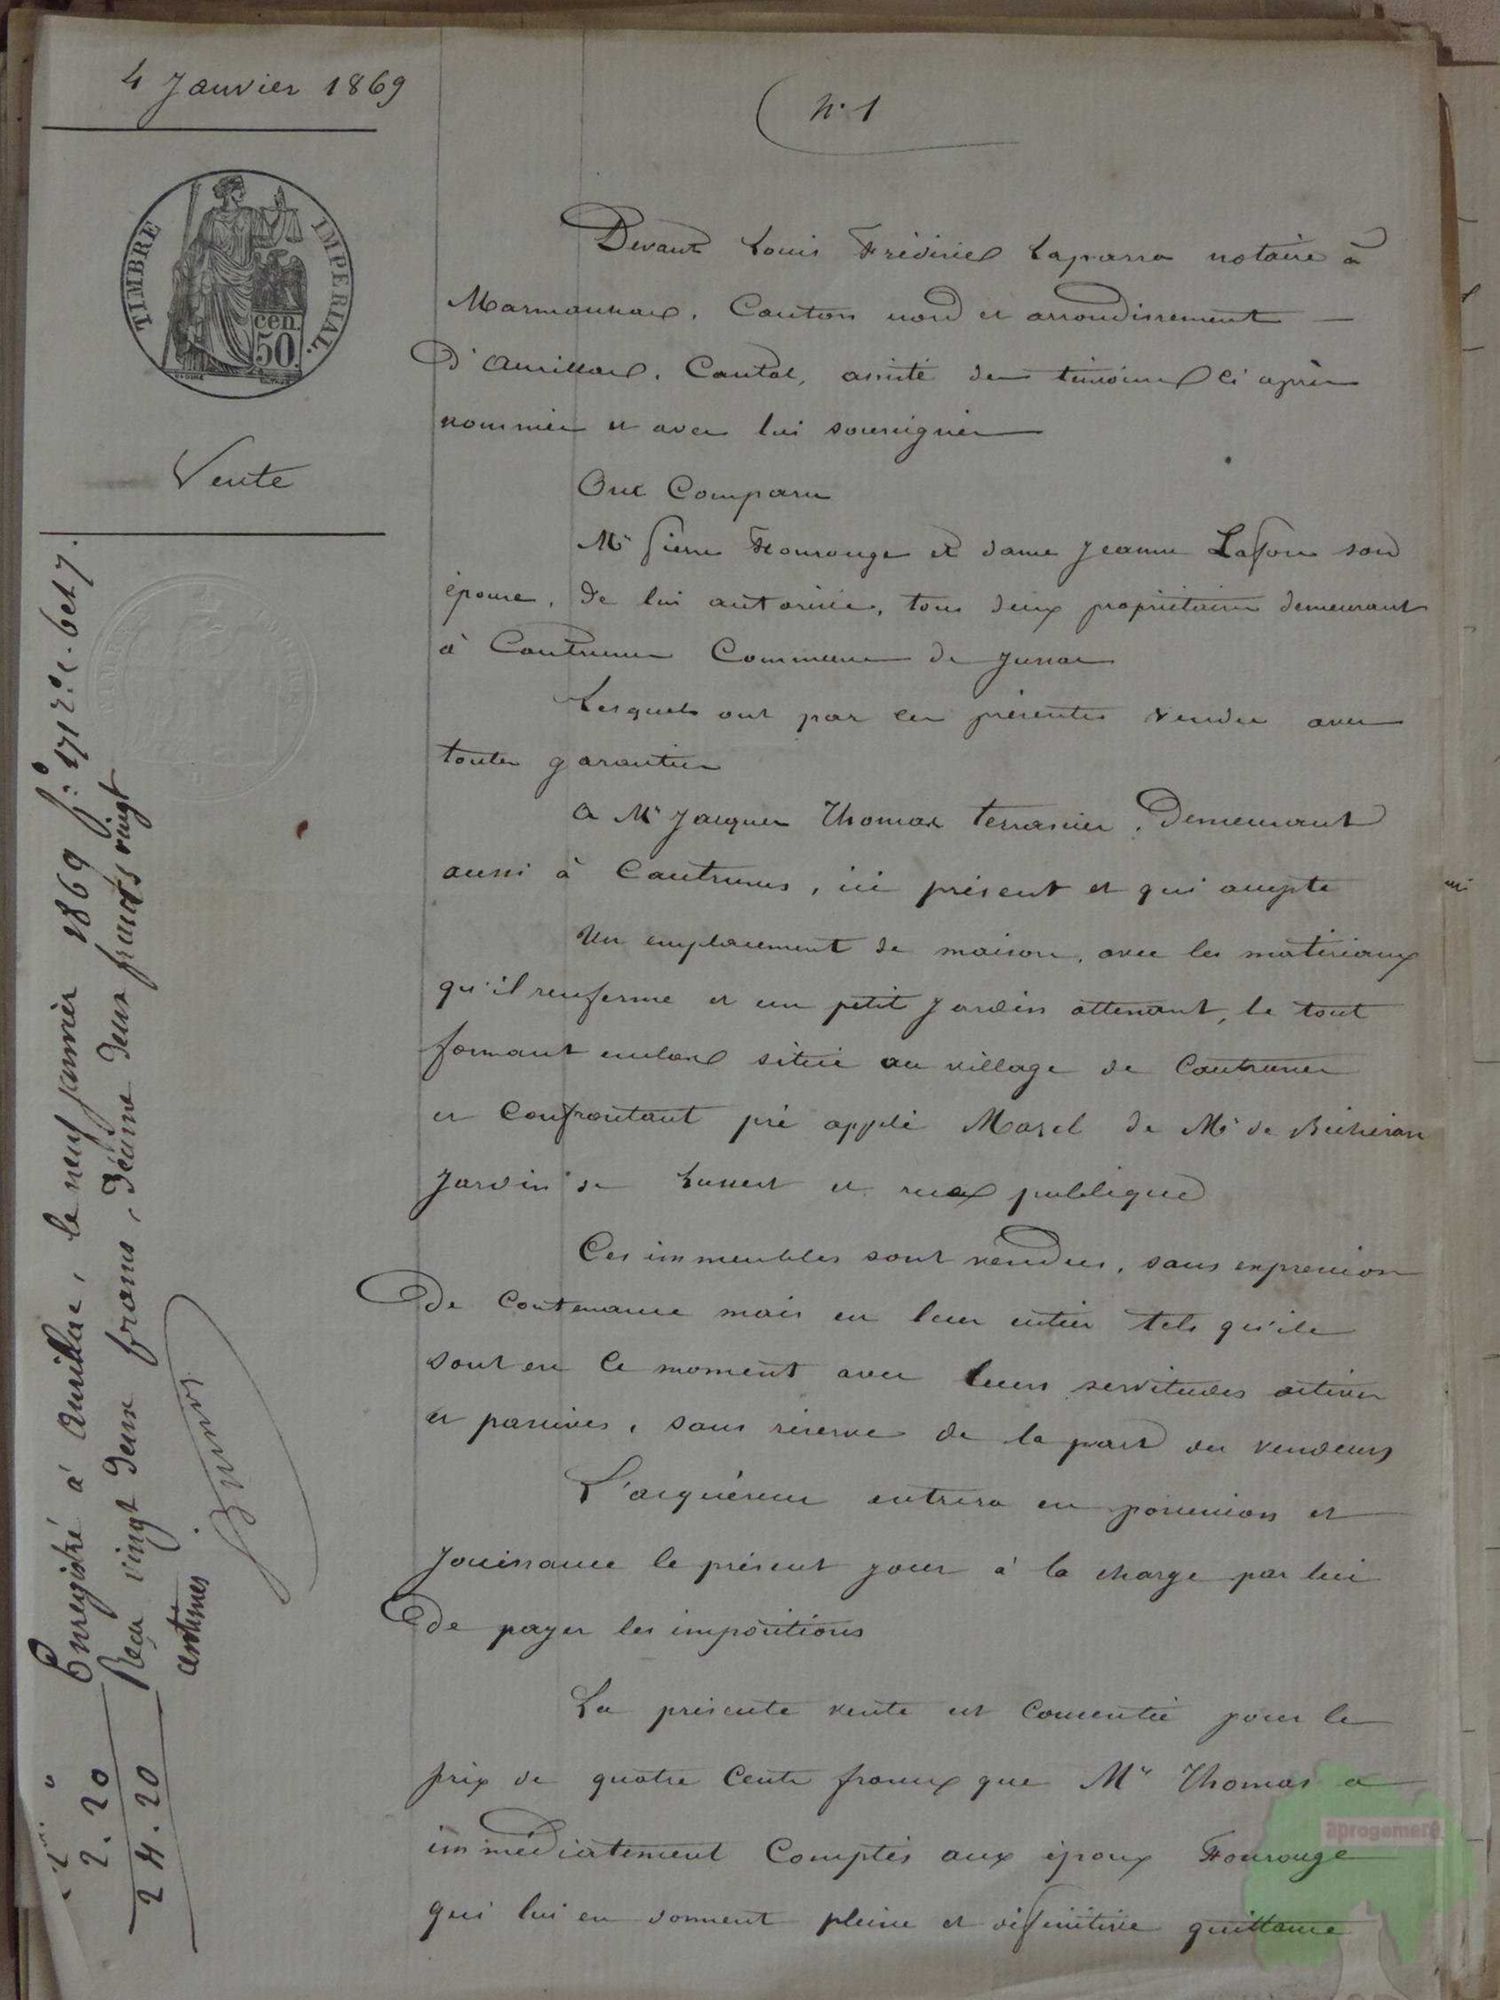 4 Janvier 1869
N° 1
TIMBRE IMPERIAL.
cen.
50.
Vente
Devant Louis Frédéric Laparra notaire à
Marmanhac, Canton nord et arrondissement
d'Aurillac, Cantal, assisté des témoins ci après
nommés et avec lui soussignés
Ont Comparu
Mr Pierre Fourouge et dame Jeanne Lafon son
épouse, de lui autorisée, tous deux propriétaires demeurant
à Cautrunes Commune de Jussac
Lesquels ont par ces présentes vendu avec
toutes garanties
a Mr Jacques Thomas terrassier, demeurant
aussi à Cautrunes, ici présent et qui accepte
Un emplacement de maison, avec les matériaux
qu'il renferme et un petit Jardin attenant, le tout
formant enclos situé au village de Cautrunes
et Confrontant pré applé Mazel de Mr de
Jardin de et rue publique
Ces immeubles sont vendus, sans expression
de Contenance mais en leur entier tels qu'ils
sont en ce moment avec leurs servitudes actives
et passives, sans réserve de la part des vendeurs
L'acquéreur entrera en possession et
Jouissance le présent jour à la charge par lui
de payer les impositions
La présente vente est Consentie pour le
prix de quatre Cents francs que Mr Thomas a
immédiatement Comptés aux époux Fourouge
qui lui en donnent pleine et définitive quittance
Enregistré à Aurillac, le neuf janvier 1869 f° 171 r° c. 6 et 7.
Reçu vingt deux francs, décime deux francs vingt
centimes
2.20
24.20
aprogemere